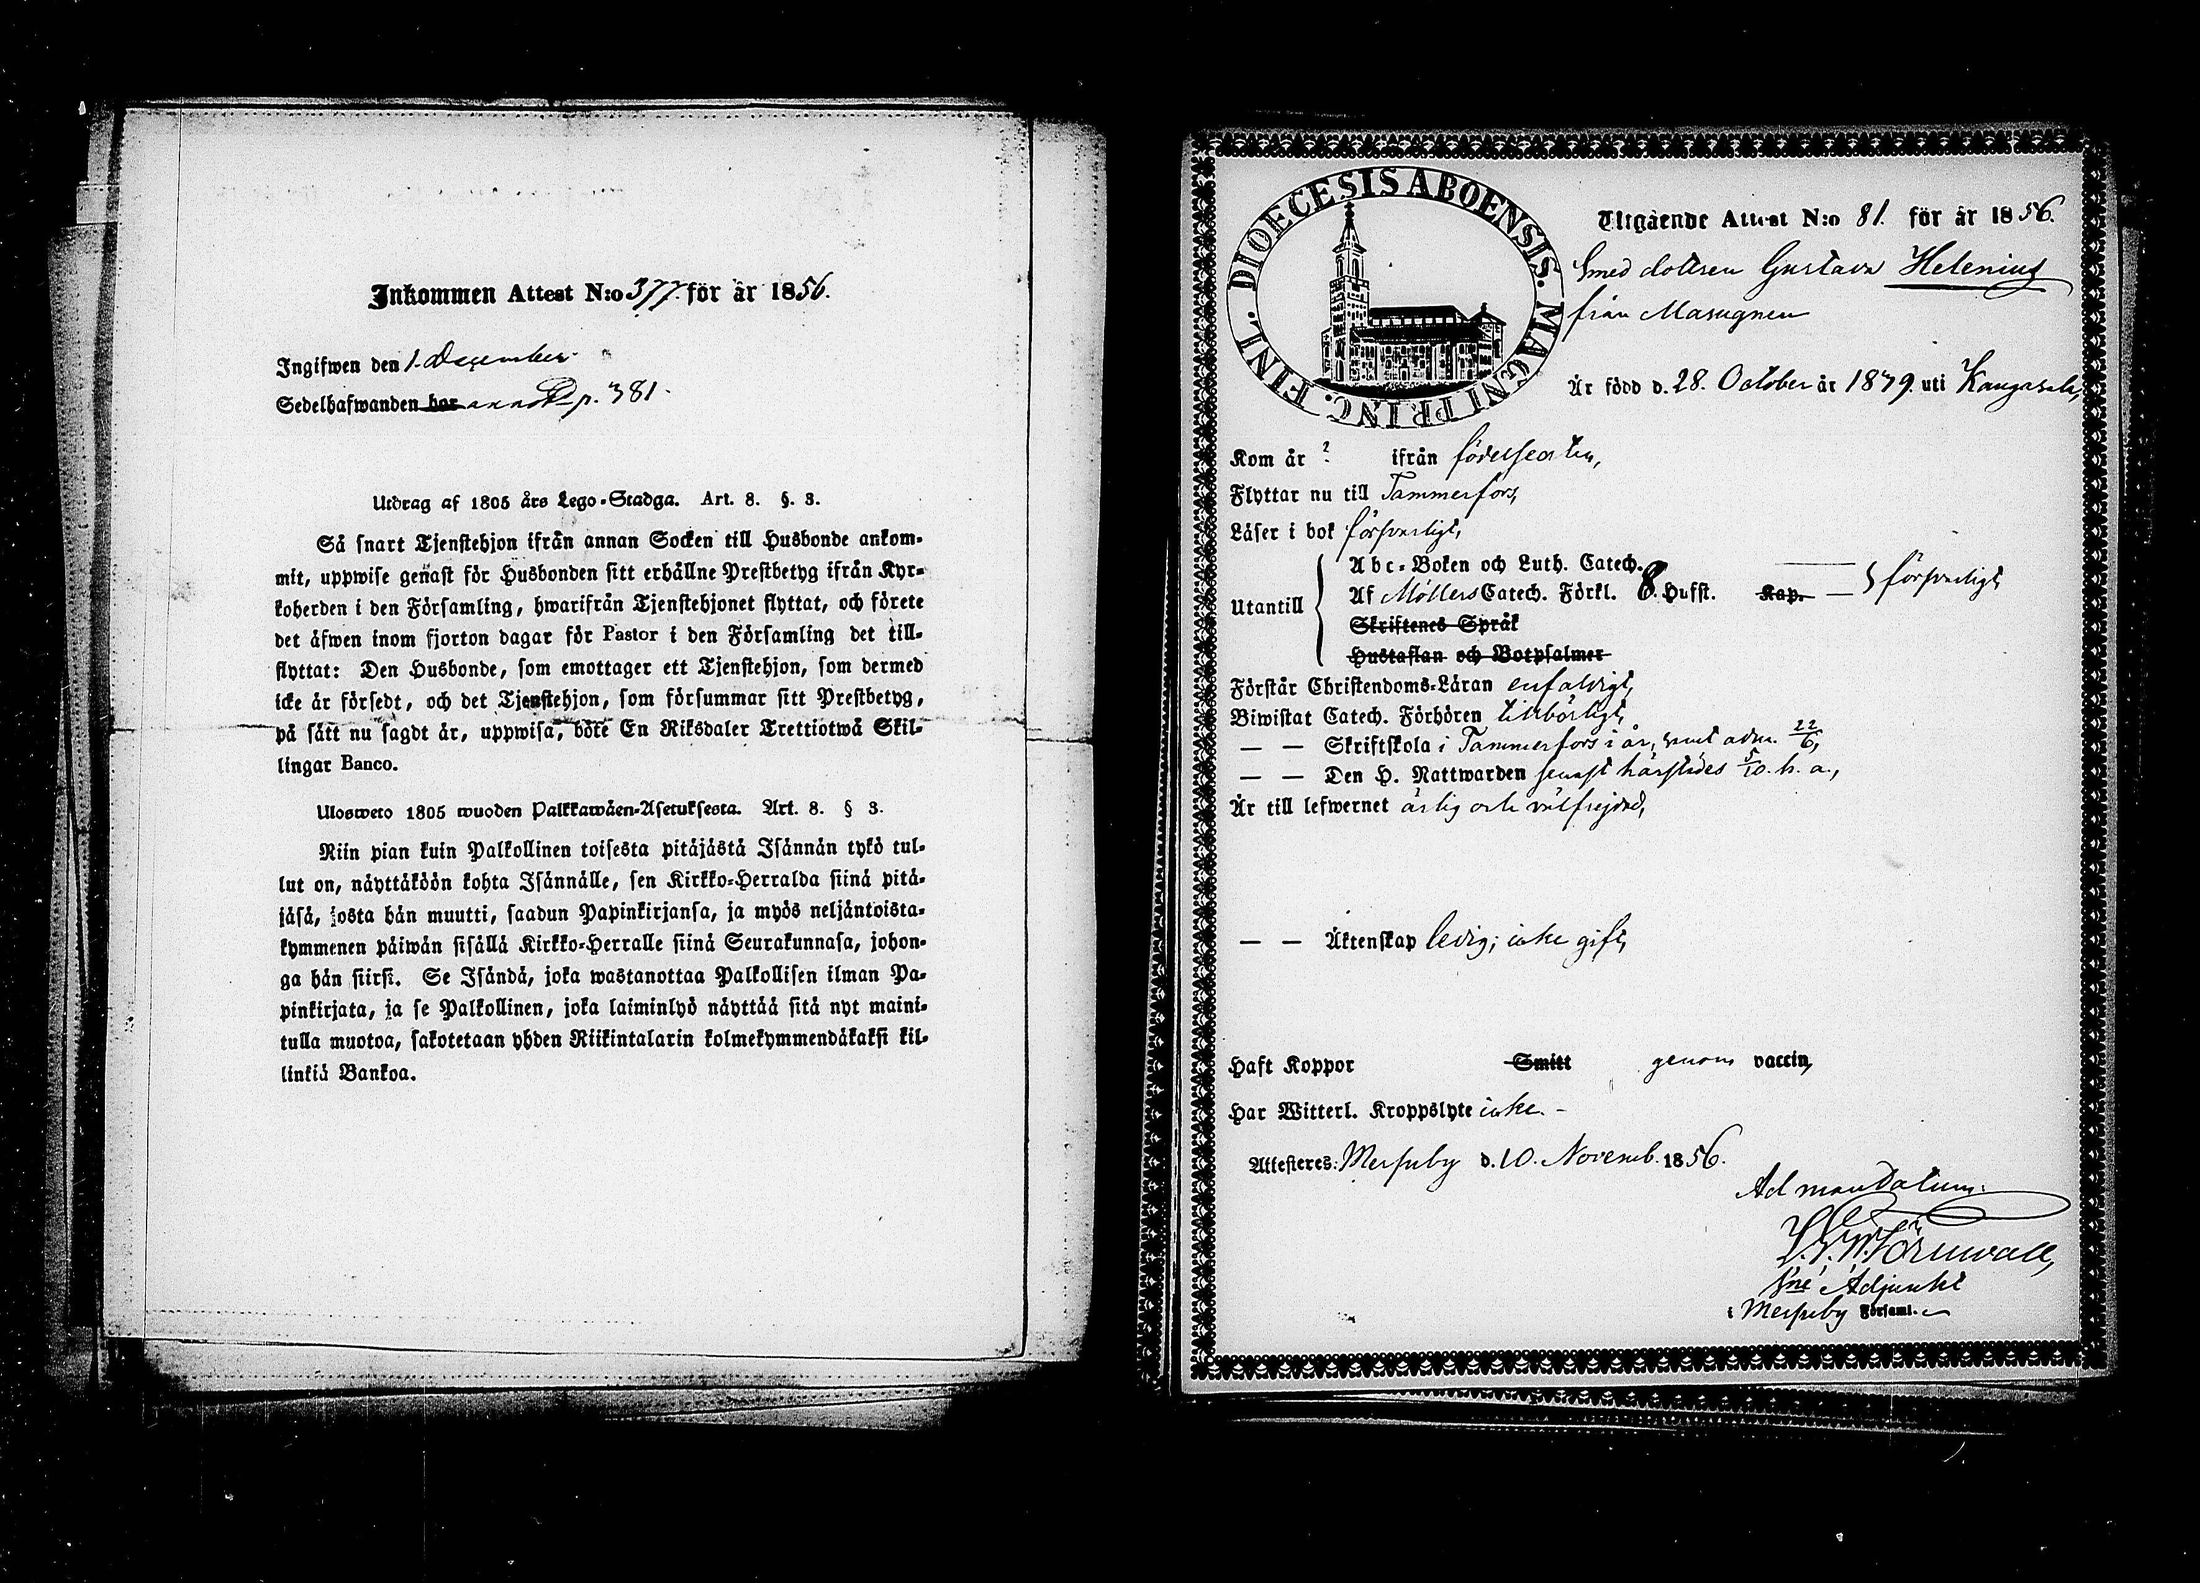 Inkommen Attest N:o 377. för år 1856.
Ingifwen den 1. December
Sedelhafwanden har annot. p. 381.
Utdrag af 1805 års Lego-Stadga. Art. 8. §. 3.
Så snart Tjenstehjon ifrån annan Socken till Husbonde ankom-
mit, uppwise genast för Husbonden sitt erhållne Prestbetyg ifrån Kyr-
koherden i den Församling, hwarifrån Tjenstehjonet flyttat, och förete
det äfwen inom fjorton dagar för Pastor i den Församling det till-
flyttat: Den Husbonde, som emottager ett Tjenstehjon, som dermed
icke är försedt, och det Tjenstehjon, som försummar sitt Prestbetyg,
på sätt nu sagdt är, uppwisa, böte En Riksdaler Trettiotwå Skil-
lingar Banco.
Ulosweto 1805 wuoden Palkkawäen-Asetuksesta. Art. 8. § 3.
Niin pian kuin Palkollinen toisesta pitäjästä Isännän tykö tul-
lut on, näyttäköön kohta Isännälle, sen Kirkko-Herralda siinä pitä-
jäsä, josta hän muutti, saadun Papinkirjansa, ja myös neljäntoista-
kymmenen päiwän sisällä Kirkko-Herralle siinä Seurakunnasa, johon-
ga hän siirsi. Se Isändä, joka wastanottaa Palkollisen ilman Pa-
pinkirjata, ja se Palkollinen, joka laiminlyö näyttää sitä nyt maini-
tulla muotoa, sakotetaan yhden Riikintalarin kolmekymmendäkaksi kil-
linkiä Bankoa.
DIOECESIS ABOENSIS. MAGNI PRINC. FINL.
Utgående Attest N:o 81. för år 1856.
Smed dottren Gustava Helenius
från Masugnen
Är född d. 28. October år 1839. uti Kangasala,
Kom år ? ifrån födelseorten,
Flyttar nu till Tammerfors,
Läser i bok försvarligt,
Abc-Boken och Luth. Catech.
Utantill Af Möllers Catech. Förkl. 8. Hufst. Kap. — försvarligt
Skriftenes Språk
Hustaflan och Botpsalmer
Förstår Christendoms-Läran enfaldigt,
Biwistat Catech. Förhören tillbörligt,
— — Skriftskola i Tammerfors i år, samt adm. 22/6,
— — Den H. Nattwarden senast härstädes 5/10. h. a.,
Är till lefwernet ärlig och välfrejdad,
— — Äktenskap ledig; icke gift,
Haft Koppor Smitt genom vaccin,
Har Witterl. Kroppslyte icke. –
Attesteres: Messuby d. 10. Novemb. 1856.
Ad mandatum:
Törnwall,
Adjunkt
i Messuby Församl.